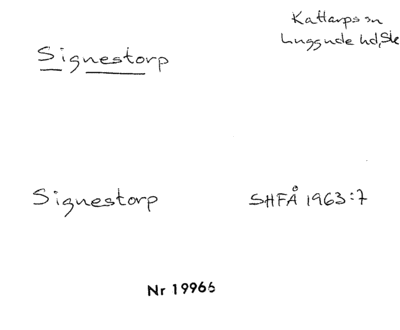 Kattarps sn
Luggude hd, Sk
Signestorp
Signestorp SHFÅ 1963:7
Nr 19966